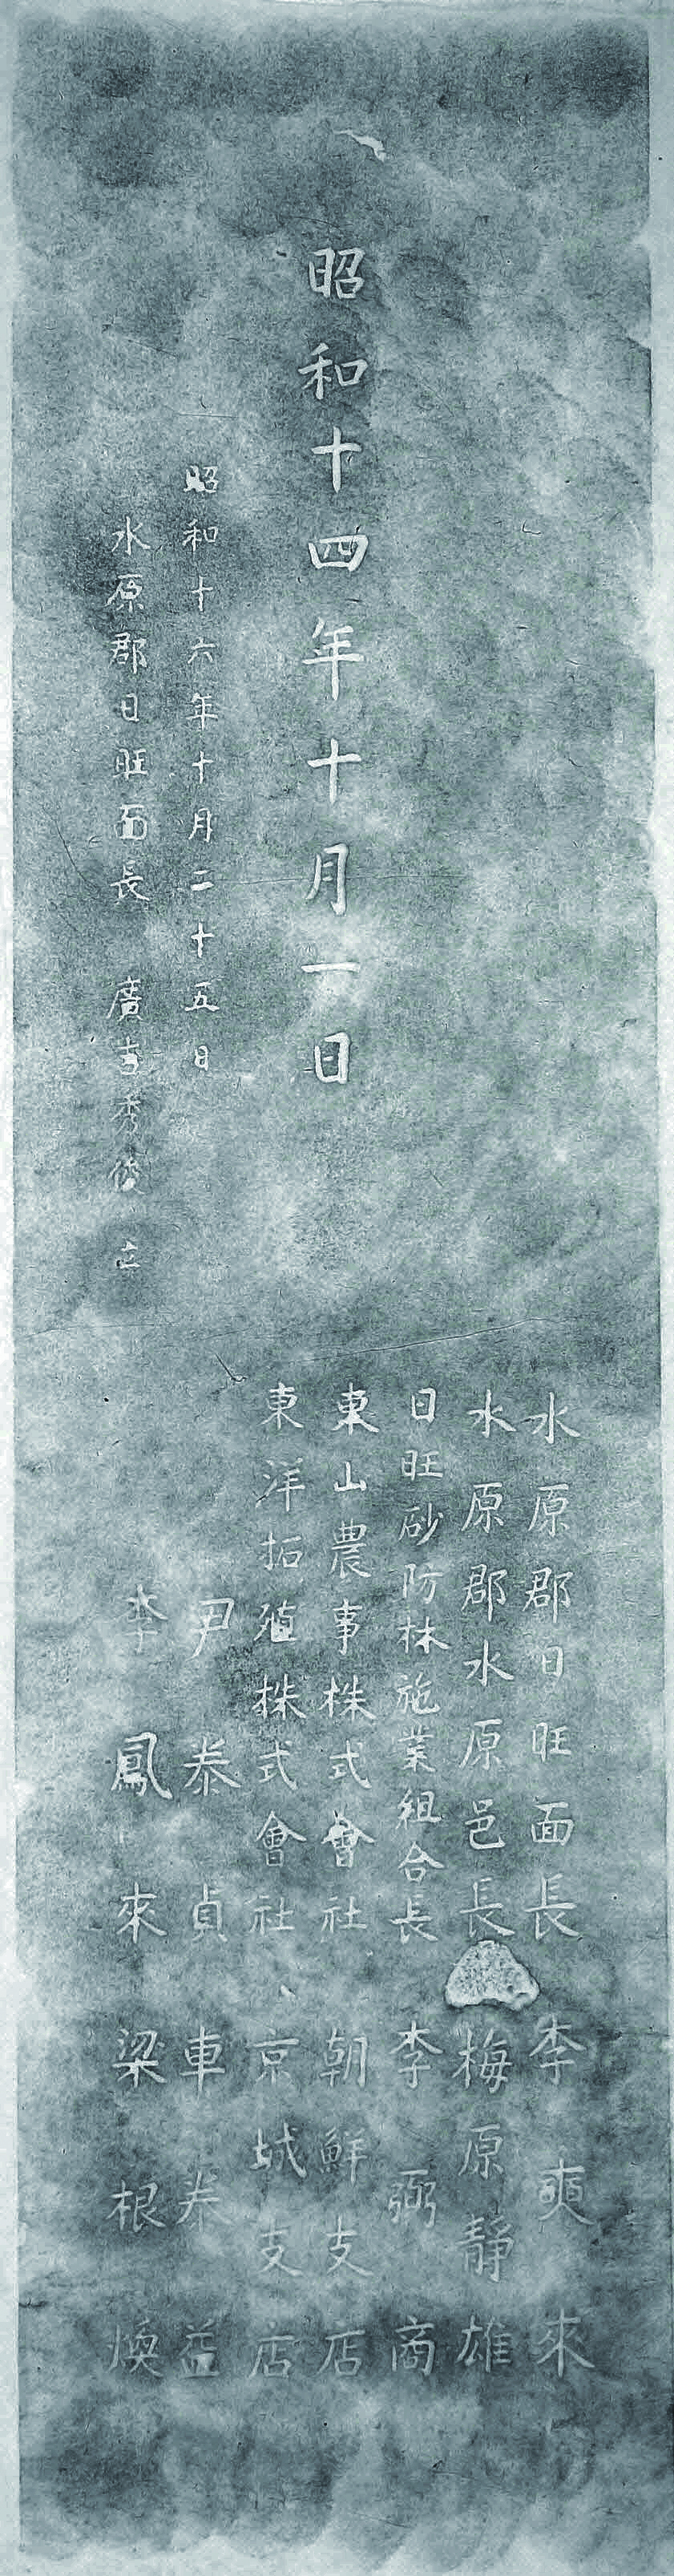 昭和十四年十月一日
昭和十六年十月二十五日
水原郡日旺面長 廣吉秀俊 立
水原郡日旺面長 李奭來
水原郡水原邑長 梅原靜雄
日旺砂防林施業組合長 李弼商
東山農事株式會社 朝鮮支店
東洋拓殖株式會社 京城支店
尹泰貞 車泰益
李鳳來 梁根煥